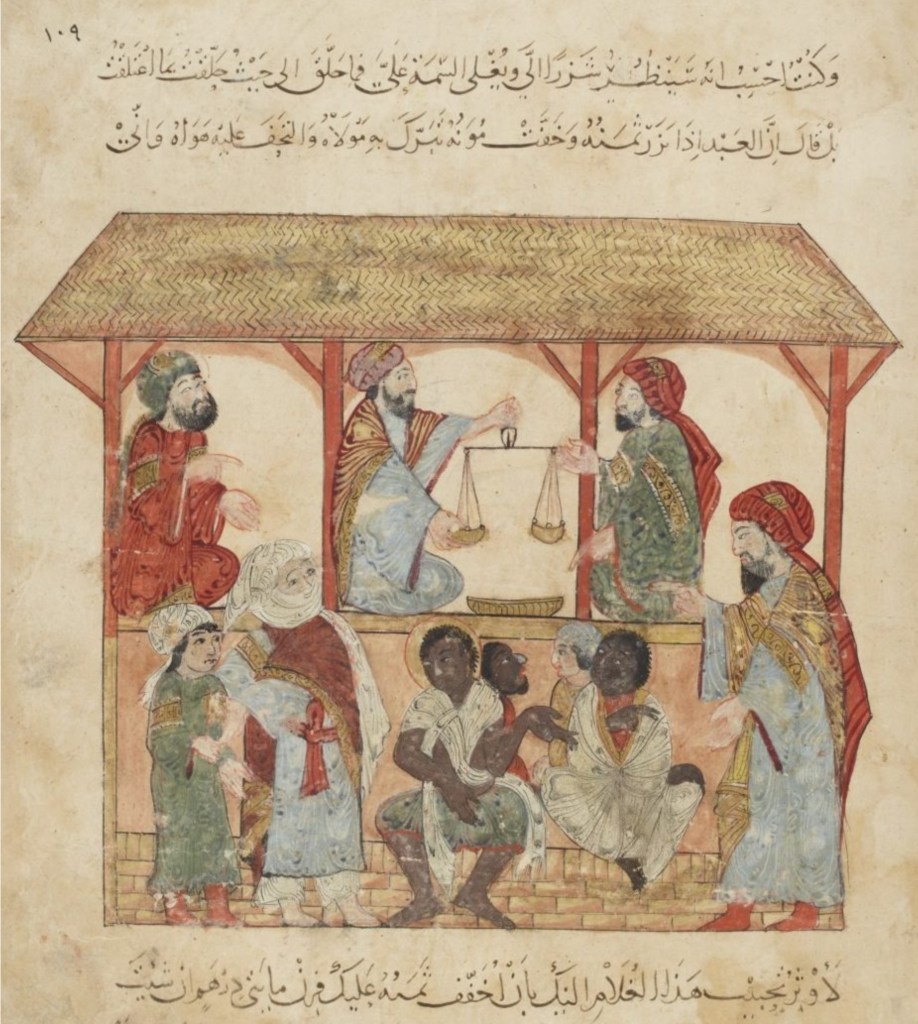 ١٠٩
وكنت احسب انه سينظر شزرا الي ويغلي السمة علي فما حلق الى حيث حلقت بما اعتلقت
بل قال ان العبد اذا نزر ثمنه وخفت مونه تبرك به مولاه والتحف عليه هواه واني
لاوثر تحبيب هذا الغلام اليك بان اخفف ثمنه عليك فزن مايتي درهم ان شيت